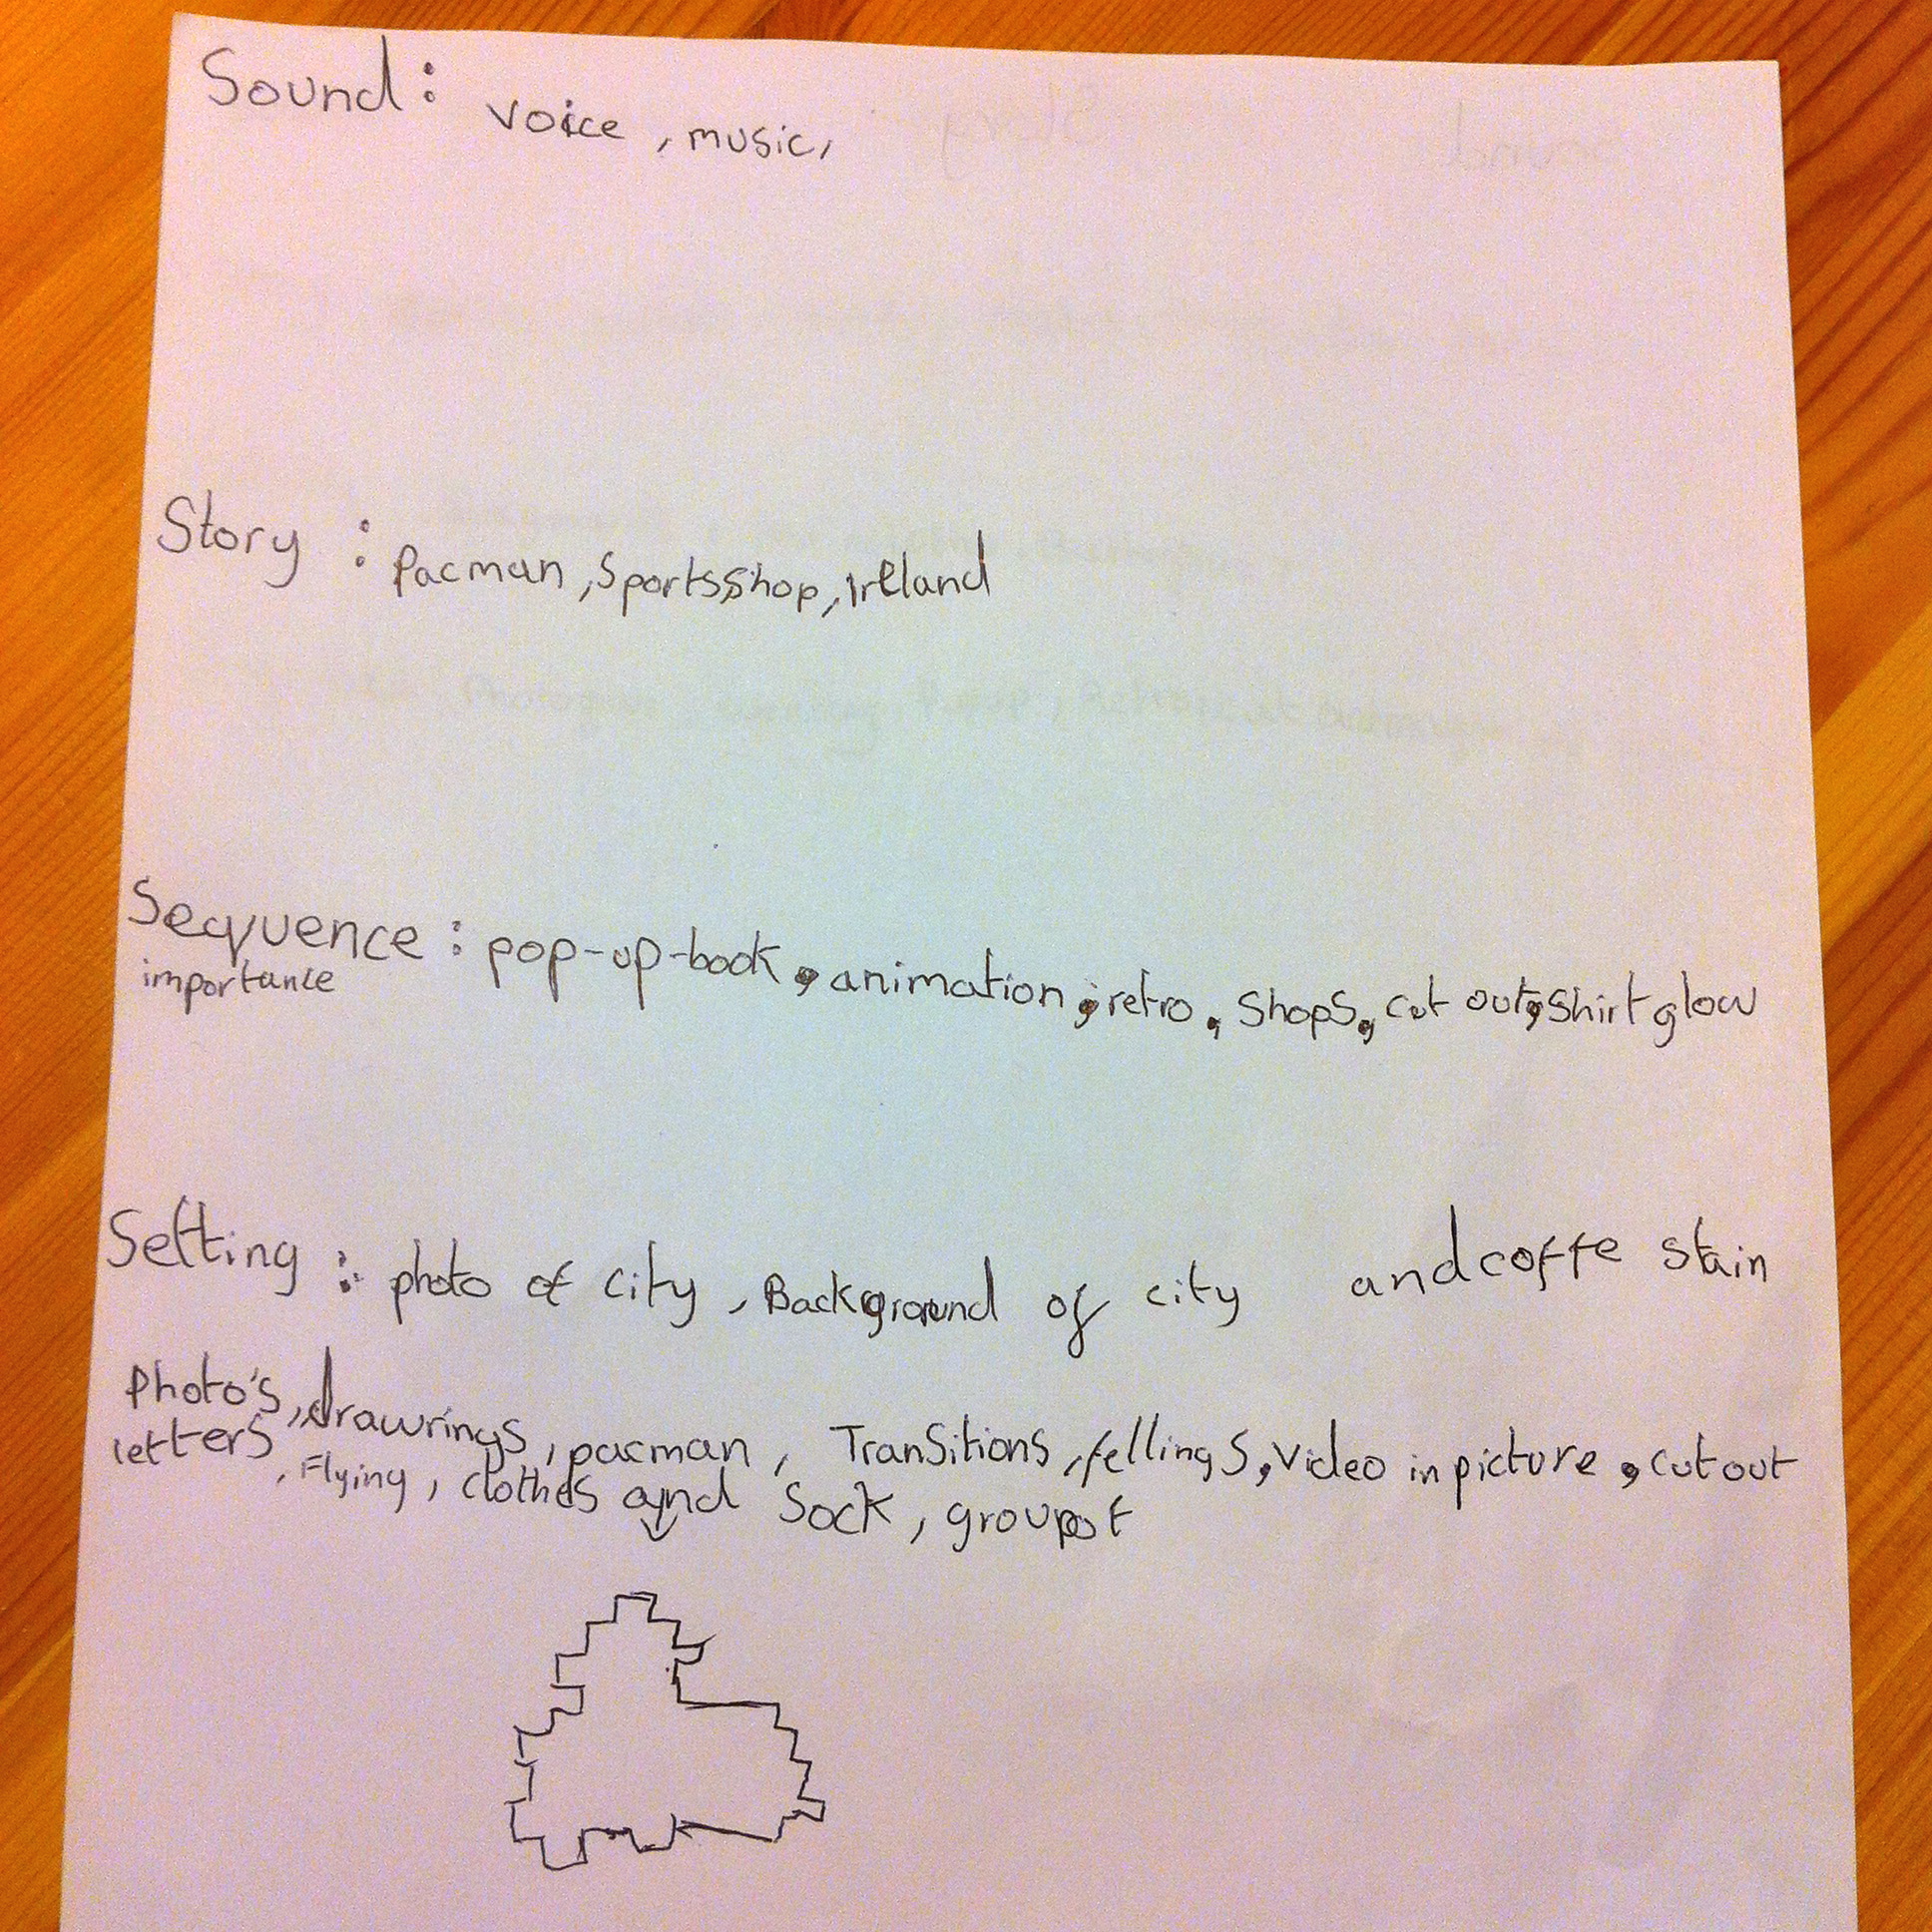 Sound: voice, music,
Story : Pacman, Sportsshop, Ireland
Sequence : pop-up-book, animation, retro, shops, cut out, shirt glow
importance
Setting : photo of city, Background of city and coffe stain
Photo's, drawrings, pacman, Transitions, fellings, video in picture, cut out
letters, Flying, clothes and Sock, groupst